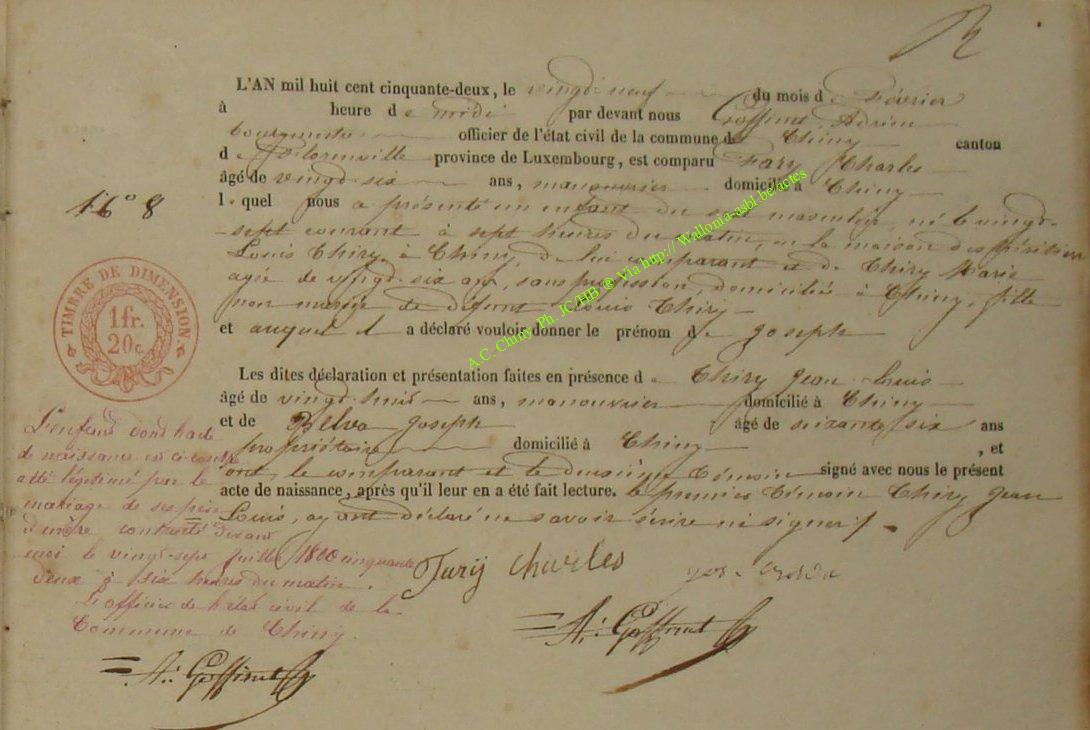 L'AN mil huit cent cinquante-deux, le vingt neuf du mois de Février
à heure de midi par devant nous Goffinet Adrien
bourgmestre officier de l'état civil de la commune de Chiny canton
de Florenville province de Luxembourg, est comparu Jary Charles
âgé de vingt six ans, manouvrier domicilié à Chiny
lequel nous a présenté un enfant du sexe masculin, né le vingt-
sept courant à sept heures du matin, en la maison des héritiers
Louis Thiry à Chiny, de lui comparant et de Thiry Marie
agée de vingt-six ans, sans profession, domiciliée à Chiny, fille
non mariée de défunt Louis Thiry
et auquel il a déclaré vouloir donner le prénom de Joseph
Les dites déclaration et présentation faites en présence de Thiry Jean Louis
âgé de vingt huit ans, manouvrier domicilié à Chiny
et de Joseph âgé de soixante six ans
propriétaire domicilié à Chiny , et
ont le comparant et le deuxième témoin signé avec nous le présent
acte de naissance, après qu'il leur en a été fait lecture. le premier témoin Thiry Jean
Louis, ayant déclaré ne savoir écrire ni signer
Jurij Charles
A: Goffinet
N° 8
TIMBRE DE DIMENSION.
1 fr.
20 c.
L'enfant dont l'acte
de naissance est ci-contre
a été légitimé par le
mariage de ses père
& mère contracté devant
moi le vingt-sept Juillet 1800 cinquante
deux à six heures du matin.
L'officier de l'état civil de la
Commune de Chiny.
A: Goffinet
A.C. Chiny Ph. JC/HB ® Via http:// Wallonia-asbl.be/actes